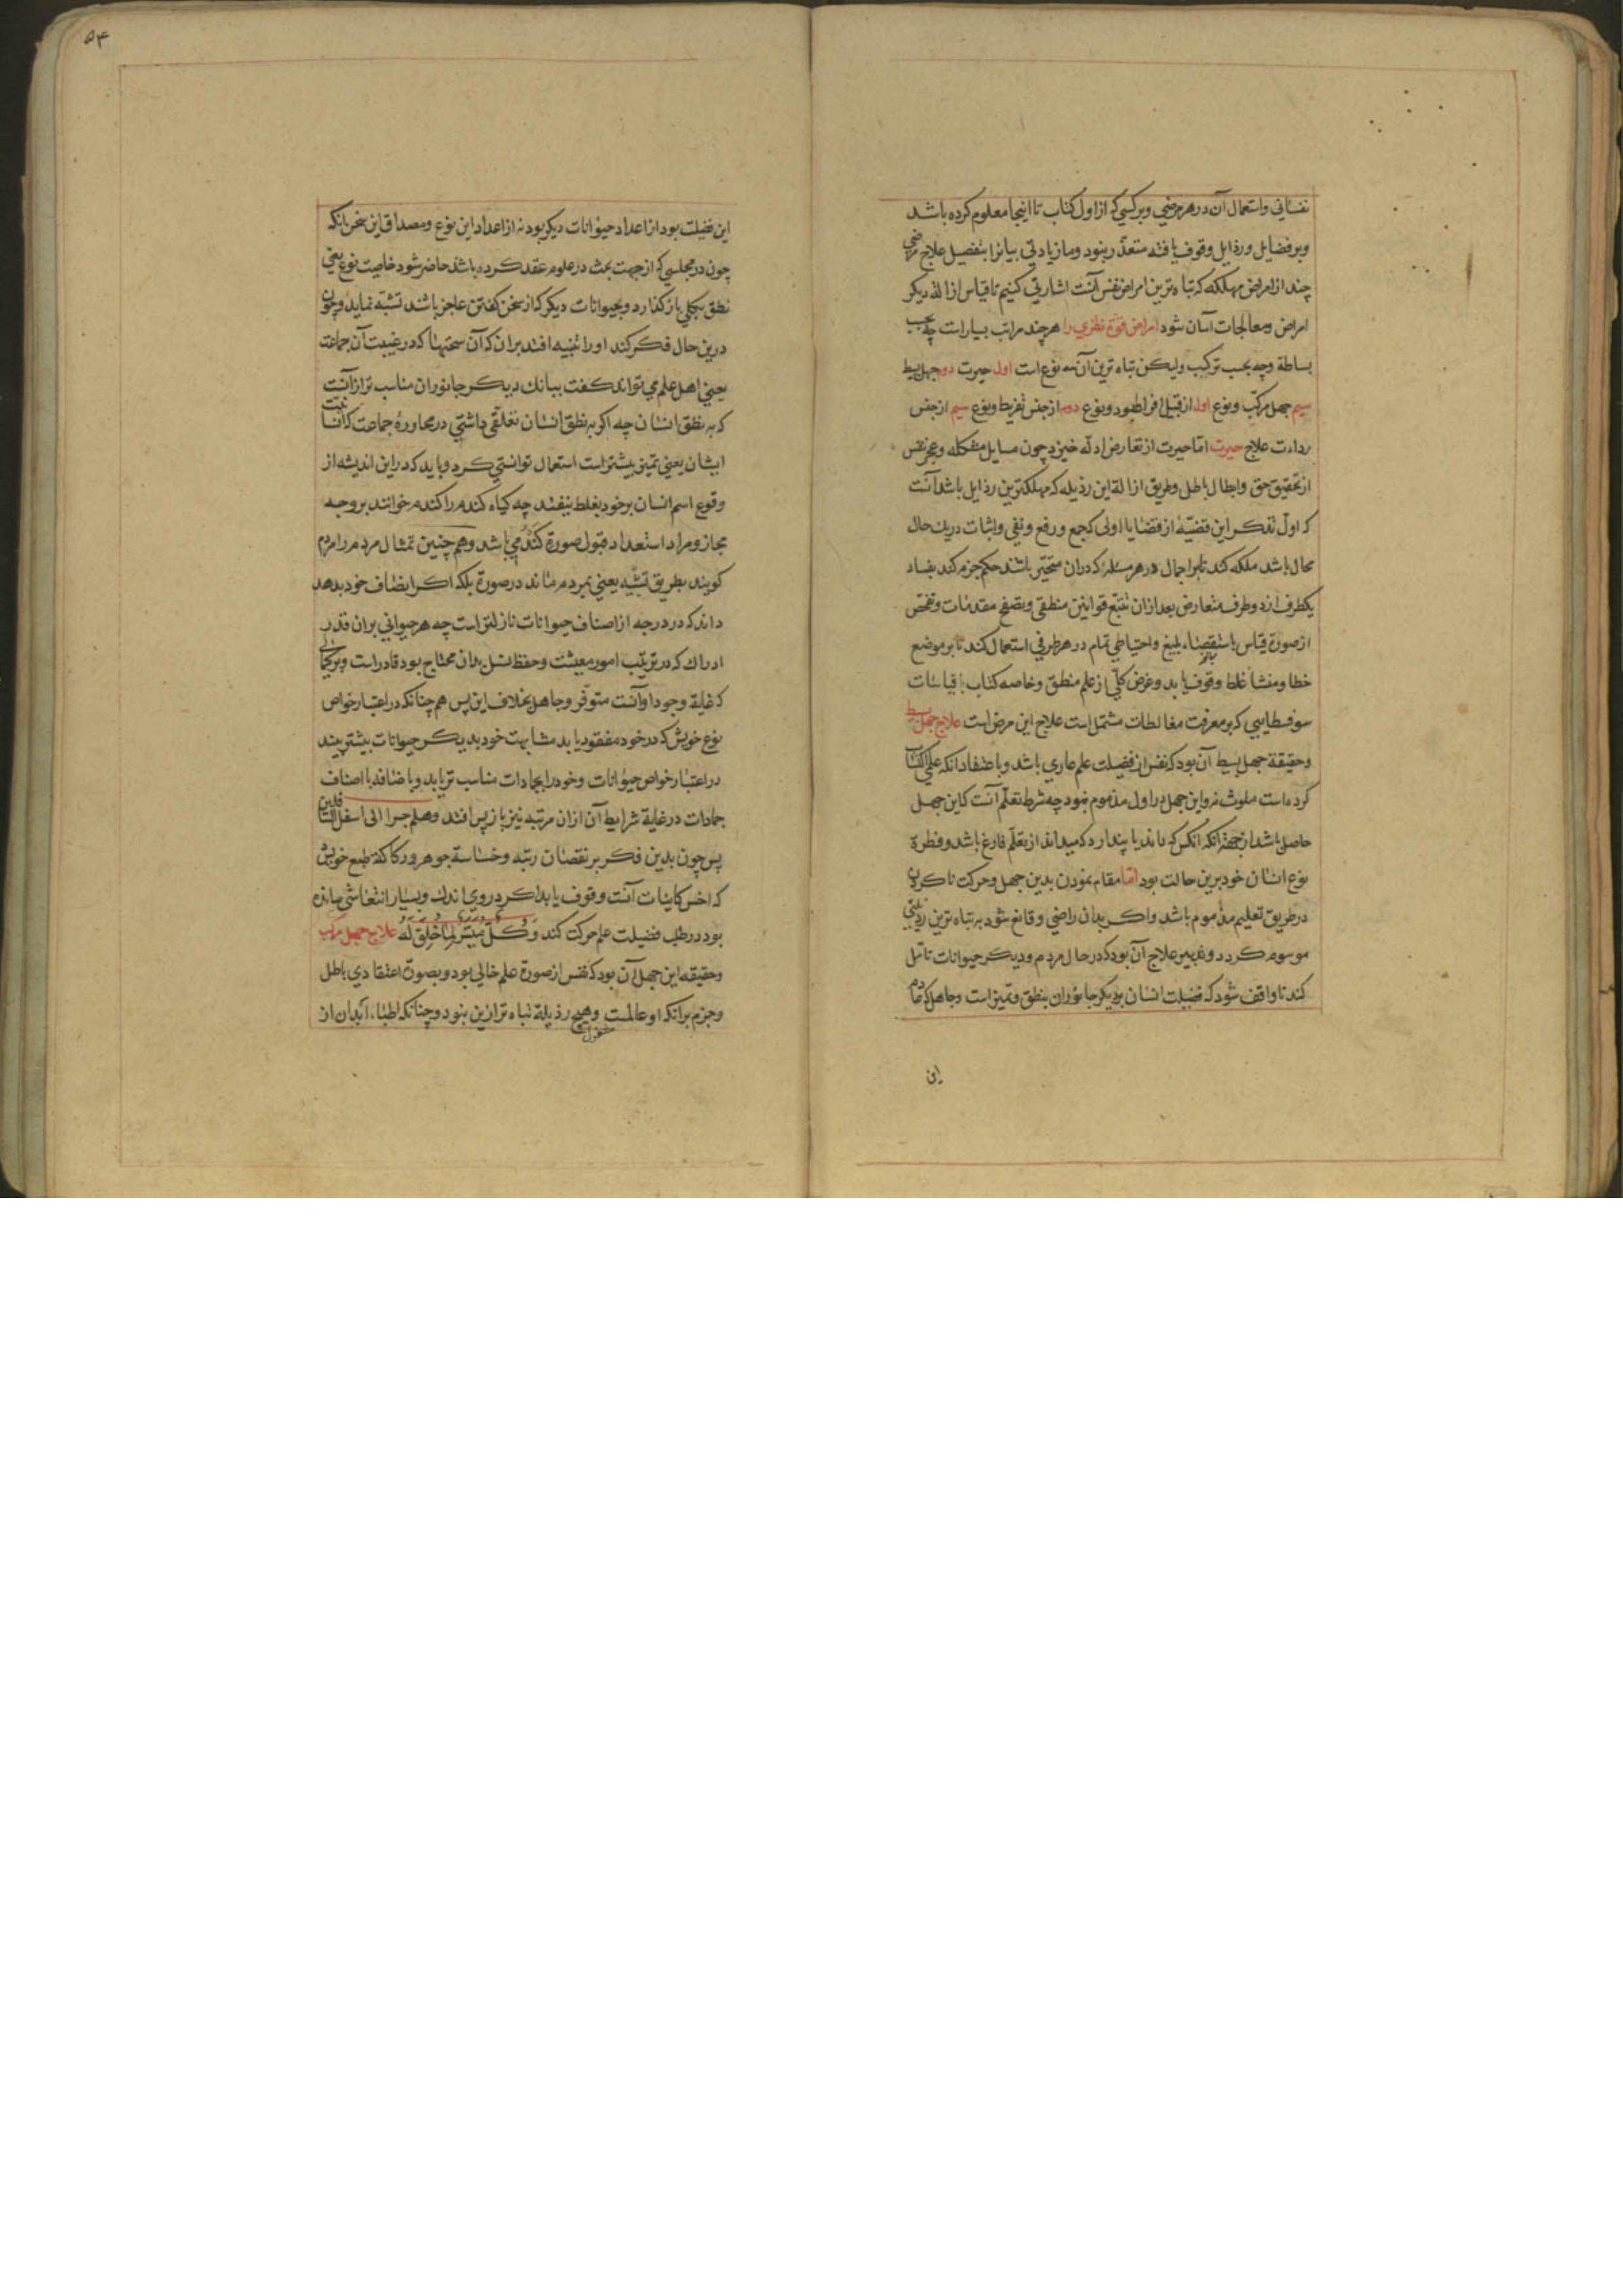 نفسانی واستعمال آن در هر مرضی وبر کسی که از اول کتاب تا اینجا معلوم کرده باشد
وبر فضایل ورذایل وقوف یافته متعذّر نبود وما زیادتی بیانرا بتفصیل علاج مرضی
چند از امراض مهلکه که تباه ترین امراض نفس آنست اشارتی کنیم تا قیاس ازالهٔ دیکر
امراض ومعالجات آسان شود امراض قوّة نظری را هر چند مراتب بسیارست چه بحسب
بساطة وچه بحسب ترکیب ولیکن تباه ترین آن سه نوع است اول حیرت دوم جهل بسیط
سیم جهل مرکّب ونوع اول از قبیل افراط بود ونوع دوم از جنس تفریط ونوع سیم از جنس
رداءت علاج حیرت امّا حیرت از تعارض ادلّه خیزد چون مسایل مشکله وعجز نفس
از تحقیق حق وابطال باطل وطریق ازالهٔ این رذیله که مهلکترین رذایل باشد آنست
که اول تذکر این قضیّه از قضایا اولی که جمع ورفع ونفی واثبات در یک حال
محال باشد ملکه کند تا بر اجمال در هر مسئله که دران متحیّر باشد حکم جزم کند بفساد
یکطرف از دو طرف متعارض بعد ازان تتبّع قوانین منطقی وتصفح مقدمات وتفحّص
از صورة قیاس باستقصاء بلیغ واحتیاطی تمام در هر طرفی استعمال کند تا بر موضع
خطا ومنشأ غلط وقوف یابد وغرض کلّی از علم منطق وخاصه کتاب قیاسات
سوفسطایی که بر معرفت مغالطات مشتمل است علاج این مرض است علاج جهل بسیط
وحقیقة جهل بسیط آن بود که نفس از فضیلت علم عاری باشد وباعتقاد انکه علمی اکتساب
کرده است ملوث نه واین جهل در اول مذموم نبود چه شرط تعلّم آنست که این جهل
حاصل باشد از جهة انکه انکس که داند یا پندارد که میداند از تعلّم فارغ باشد وفطرة
نوع انسان خود برین حالت بود امّا مقام نمودن بدین جهل وحرکت ناکردن
در طریق تعلیم مذموم باشد واکر بدان راضی وقانع شود به تباه ترین رذیلتی
موسوم کردد وتدبیر علاج آن بود که در حال مردم ودیکر حیوانات تامّل
کند تا واقف شود که فضیلت انسان بر دیکر جانوران بنطق وتمیز است وجاهل که عادم
این
۵۴
این فضیلت بود از اعداد حیوانات دیکر بود نه از اعداد این نوع ومصداق این سخن انکه
چون در مجلسی که از جهت بحث در علوم عقد کرده باشد حاضر شود خاصیت نوع یعنی
نطق بکلی باز کذارد وبحیوانات دیکر که از سخن کفتن عاجز باشند تشبّه نماید وچون
درین حال فکر کند اورا تنبیه افتد بران که آن سخنها که در غیبت آن جماعت
یعنی اهل علم می تواند کفت ببانک دیکر جانوران مناسب تر از آنست
که بنطق انسان چه اکر بنطق انسان تعلّقی داشتی در محاورهٔ جماعت که انسانیت
ایشان یعنی تمیز بیشتر است استعمال توانستی کرد وباید که دراین اندیشه از
وقوع اسم انسان برخود بغلط نیفتد چه کیاه کندم را کندم خوانند بر وجه
مجاز ومراد استعداد قبول صورة کندمی باشد وهم چنین تمثال مردم را مردم
کویند بطریق تشبیه یعنی بمردم ماند در صورة بلکه اکر انصاف خود بدهد
داند که در درجه از اصناف حیوانات نازلتر است چه هر حیوانی بران قدر
ادراک که در ترتیب امور معیشت وحفظ نسل بدان محتاج بود قادراست وبر کمالی
که غایة وجود او آنست متوفّر وجاهل بخلاف این پس هم چنانکه در اعتبار خواص
نوع خویش که در خود مفقود یابد مشابهت خود بدیکر حیوانات بیشتر بیند
در اعتبار خواص حیوانات وخود را بجمادات مناسب تر یابد وباضافه با اصناف
جمادات در غایة شرایط آن ازان مرتبه نیز باز پس افتد وهلم جرا الی اسفل السافلین
پس چون بدین فکر بر نقصان رتبه وخساسة جوهر ورکاکة طبع خویش
که اخس کاینات آنست وقوف یابد اکر در وی اندک وبسیار انتعاشی مانده
بود در طلب فضیلت علم حرکت کند وَکُلٌّ مُیَسَّرٌ لِمَا خُلِقَ لَهُ علاج جهل مرکب
وحقیقه این جهل آن بود که نفس از صورة علم خالی بود وبصورة اعتقادی باطل
وجزم برانکه او عالمست مشغول وهیچ رذیلة تباه تر ازین نبود وچنانکه اطباء ابدان از